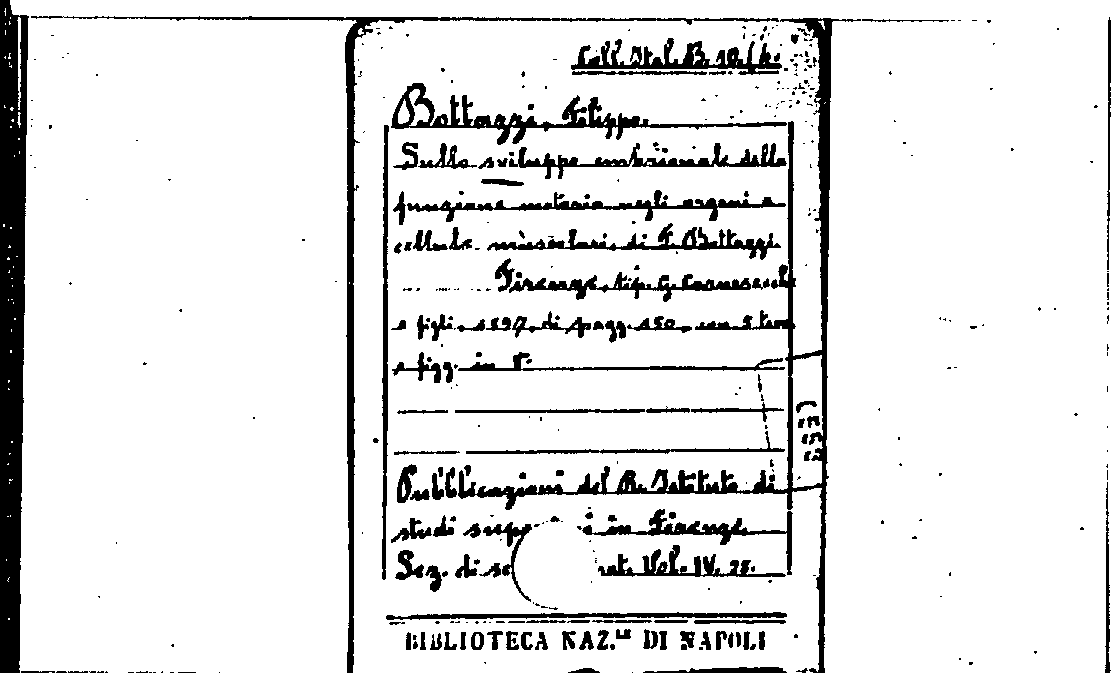 Coll. Ital. B. 10. (4.
Bottazzi, Filippo.
Sullo sviluppo embrionale della
funzione motoria negli organi a
cellule muscolari, di F. Bottazzi.
Firenze, tip. G. Carnesecchi
e figli, 1897, di pagg. 150, con 5 tav.
e figg. in 8.
Pubblicazioni del R. Istituto di
studi in Firenze.
Sez. di nat. Vol. IV. 28.
BIBLIOTECA NAZ.LE DI NAPOLI